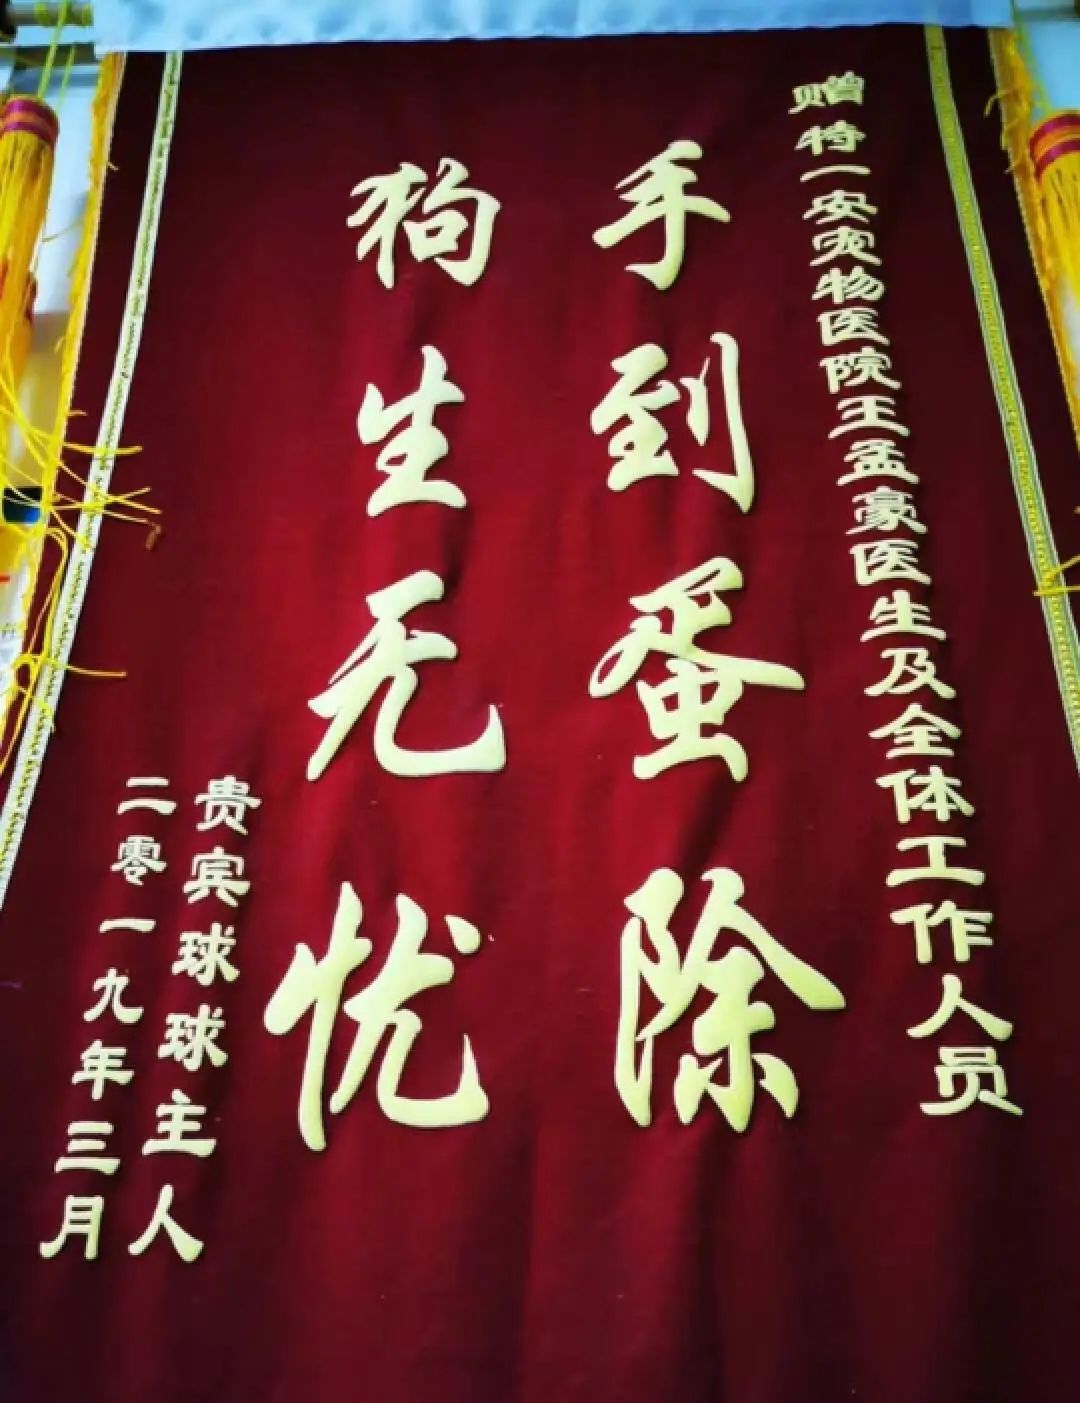 赠特一安宠物医院王孟豪医生及全体工作人员
手到蛋除
狗生无忧
贵宾球球主人
二零一九年三月